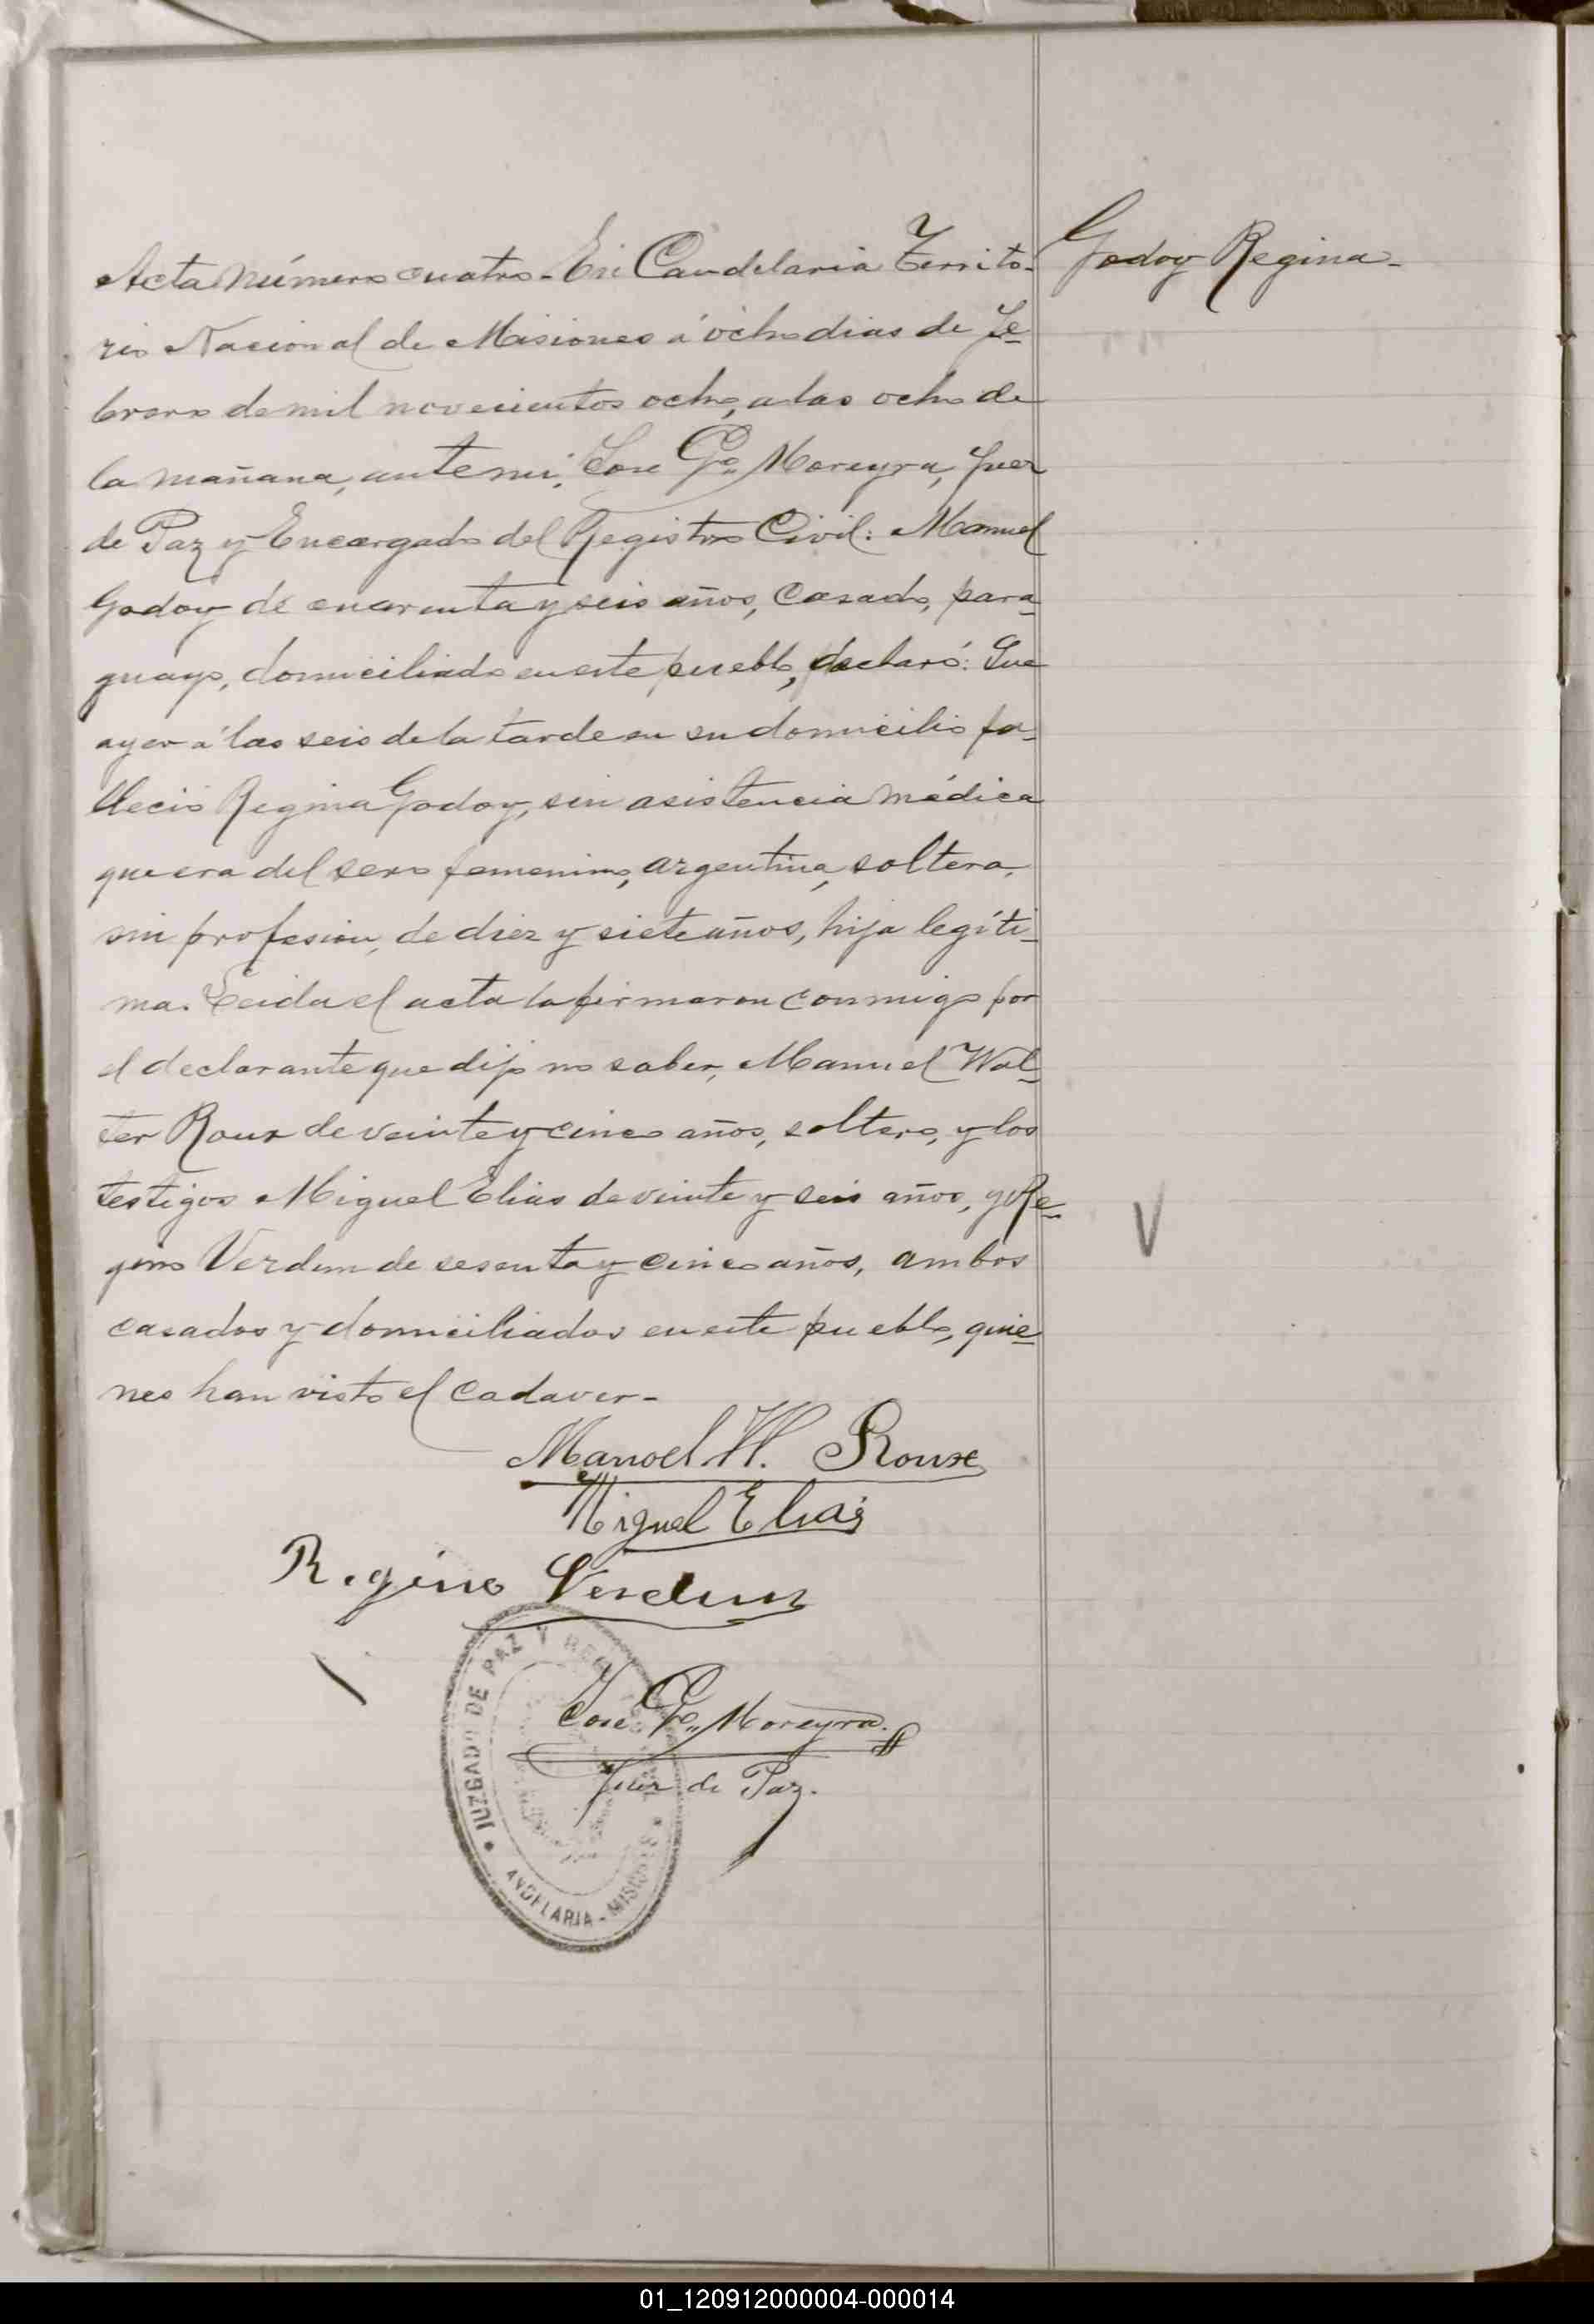 Acta número cuatro - En Candelaria Territo-
rio Nacional de Misiones á ocho dias de Fe-
brero de mil novecientos ocho, a las ocho de
la mañana, ante mi, José Go. Moreyra, Juez
de Paz y Encargado del Registro Civil: Manuel
Godoy de cuarenta y seis años, casado, para-
guayo, domiciliado en este pueblo, declaró: Que
ayer á las seis de la tarde en su domicilio fa-
lleció Regina Godoy, sin asistencia médica
que era del sexo femenino, argentina, soltera,
sin profesion, de diez y siete años, hija legíti-
ma. Leida el acta la firmaron conmigo por
el declarante que dijo no saber, Manuel Wal-
ter Roux de veinte y cinco años, soltero, y los
testigos Miguel Elias de veinte y seis años, y Re-
gino Verdun de sesenta y cinco años, ambos
casados y domiciliados en este pueblo, quie-
nes han visto el cadaver-
Godoy Regina-
V
Manoel W. Roux
Miguel Elias
Regino Verdun
José Go. Moreyra.
Juez de Paz.
JUZGADO DE PAZ Y
ANDELARIA - MISIONES
01_120912000004-000014